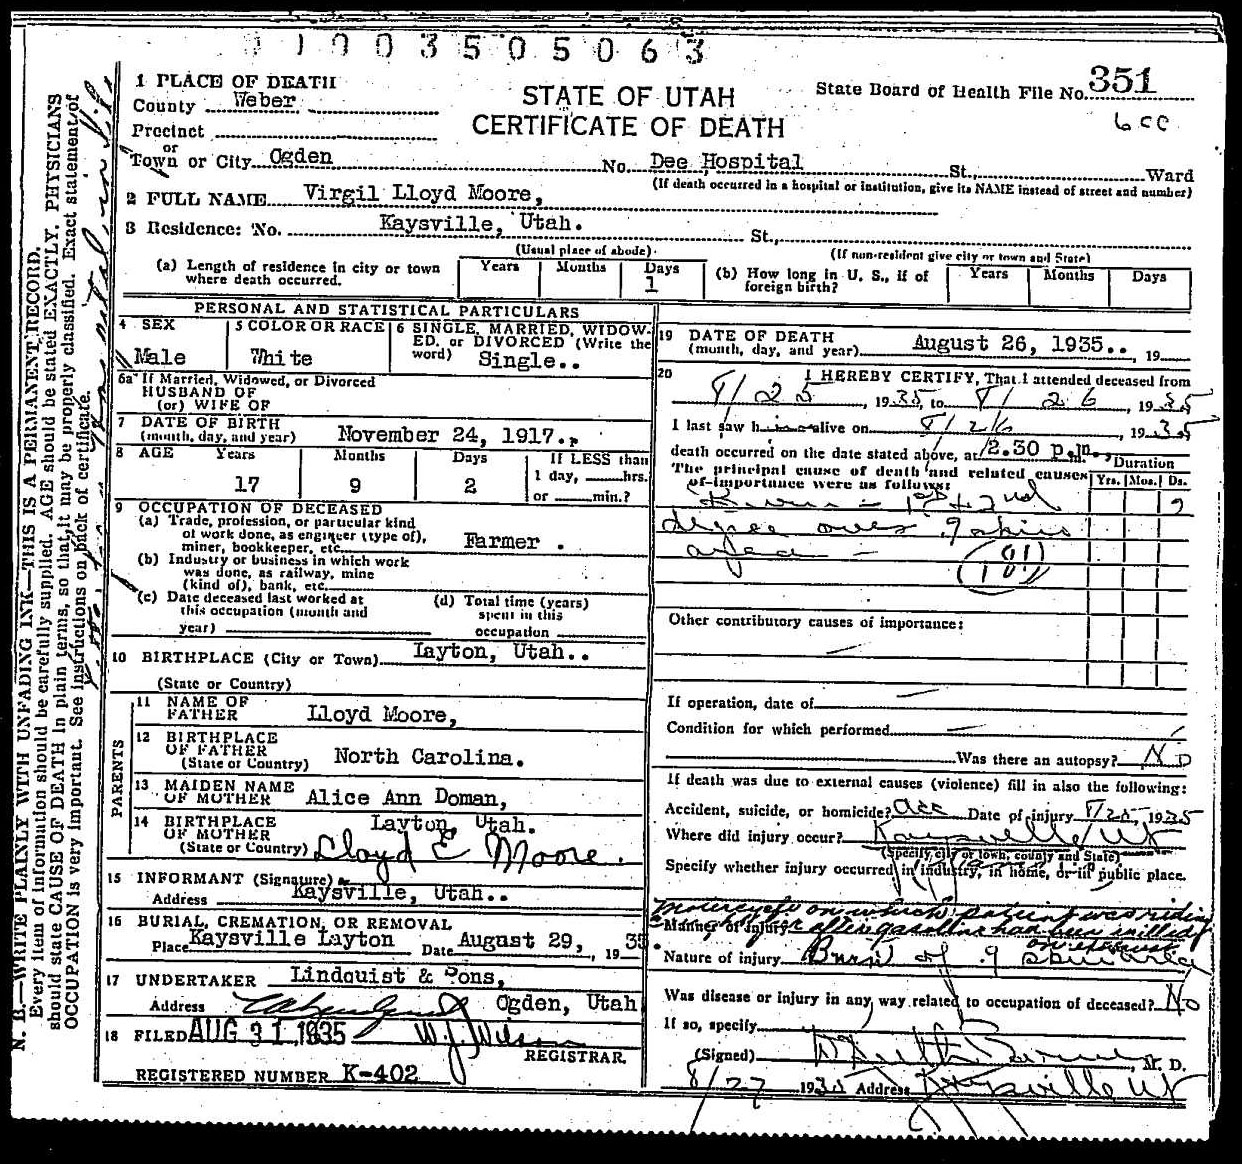 1 1 0 0 3 5 0 5 0 6 3
1 PLACE OF DEATH
County Weber
Precinct
or
Town or City Ogden No. Dee Hospital St., Ward
STATE OF UTAH
CERTIFICATE OF DEATH
State Board of Health File No. 351
6 cc
(If death occurred in a hospital or institution, give its NAME instead of street and number)
2 FULL NAME Virgil Lloyd Moore,
3 Residence: No. Kaysville, Utah. St.,
(Usual place of abode) (If non-resident give city or town and State)
(a) Length of residence in city or town where death occurred. Years Months Days 1
(b) How long in U. S., if of foreign birth? Years Months Days
PERSONAL AND STATISTICAL PARTICULARS
4 SEX Male
5 COLOR OR RACE White
6 SINGLE, MARRIED, WIDOW-
ED, or DIVORCED (Write the
word) Single..
6a If Married, Widowed, or Divorced
HUSBAND OF
(or) WIFE OF
7 DATE OF BIRTH
(month, day, and year) November 24, 1917..
8 AGE Years Months Days If LESS than
1 day, hrs.
or min.?
17 9 2
9 OCCUPATION OF DECEASED
(a) Trade, profession, or particular kind
of work done, as engineer (type of),
miner, bookkeeper, etc. Farmer .
(b) Industry or business in which work
was done, as railway, mine
(kind of), bank, etc.
(c) Date deceased last worked at
this occupation (month and
year)
(d) Total time (years)
spent in this
occupation
10 BIRTHPLACE (City or Town) Layton, Utah..
(State or Country)
PARENTS
11 NAME OF
FATHER Lloyd Moore,
12 BIRTHPLACE
OF FATHER
(State or Country) North Carolina.
13 MAIDEN NAME
OF MOTHER Alice Ann Doman,
14 BIRTHPLACE
OF MOTHER
(State or Country) Layton, Utah.
Lloyd E Moore.
15 INFORMANT (Signature)
Address Kaysville, Utah..
16 BURIAL, CREMATION, OR REMOVAL
Place Kaysville Layton Date August 29, 1935
17 UNDERTAKER Lindquist & Sons,
Address Ogden, Utah
18 FILED AUG 31 1935 W. J. Wilson
REGISTRAR.
REGISTERED NUMBER K-402
19 DATE OF DEATH
(month, day, and year) August 26, 1935.. , 19
20 I HEREBY CERTIFY, That I attended deceased from
8/25, 1935, to 8/26, 1935
I last saw him alive on 8/26, 1935
death occurred on the date stated above, at 12.30 p.m.
The principal cause of death and related causes
of importance were as follows:
Duration
Yrs. Mos. Ds.
Burn - 1st & 2nd 2
degree over
(181)
Other contributory causes of importance:
If operation, date of
Condition for which performed
Was there an autopsy? No
If death was due to external causes (violence) fill in also the following:
Accident, suicide, or homicide? Acc Date of injury 8/25, 1935
Where did injury occur? Kaysville, Ut
(Specify city or town, county and State)
Specify whether injury occurred in industry, in home, or in public place.
Motorcycle on which patient was riding
caught fire after gasoline had been spilled
Manner of injury
on
Nature of injury Burns of
Was disease or injury in any way related to occupation of deceased? No
If so, specify
(Signed) M. D.
8/27 1935 Address Kaysville Ut
N. B.—WRITE PLAINLY WITH UNFADING INK—THIS IS A PERMANENT RECORD.
Every item of information should be carefully supplied. AGE should be stated EXACTLY. PHYSICIANS
should state CAUSE OF DEATH in plain terms, so that it may be properly classified. Exact statement of
OCCUPATION is very important. See instructions on back of certificate.